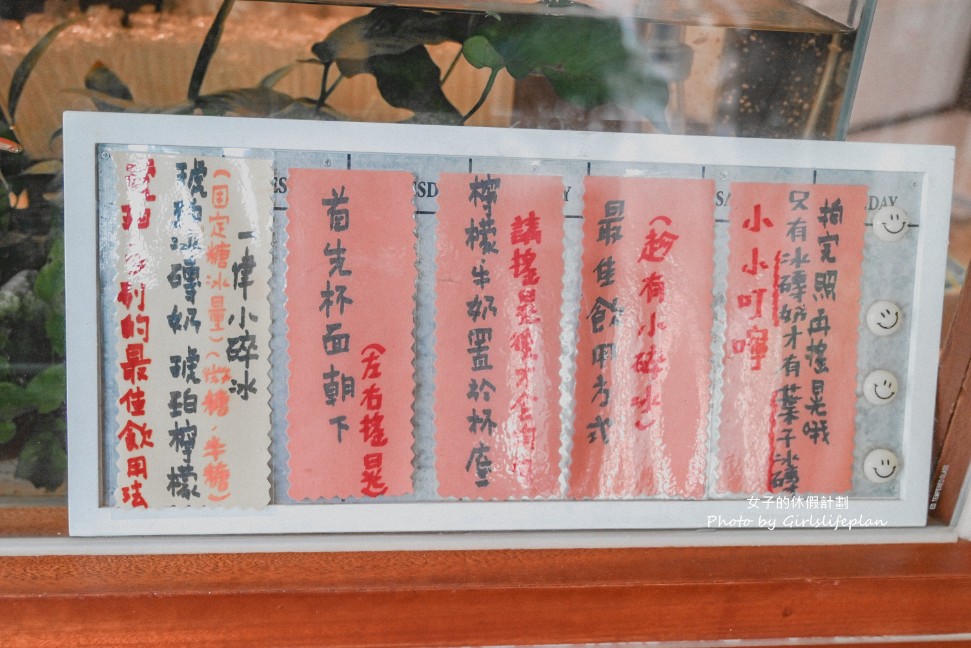 琥珀系列的最佳飲用法
琥珀冰磚奶 琥珀檸檬
(固定糖冰量)(微糖、半糖)
一律小碎冰
首先杯面朝下
(左右搖晃)
檸檬、牛奶置於杯底
請搖晃後才
最佳飲用方式
(趁有小碎冰)
小小叮嚀
只有冰磚奶才有葉子冰磚
拍完照再搖晃哦
DAY
女子的休假計劃
Photo by Girlslifeplan